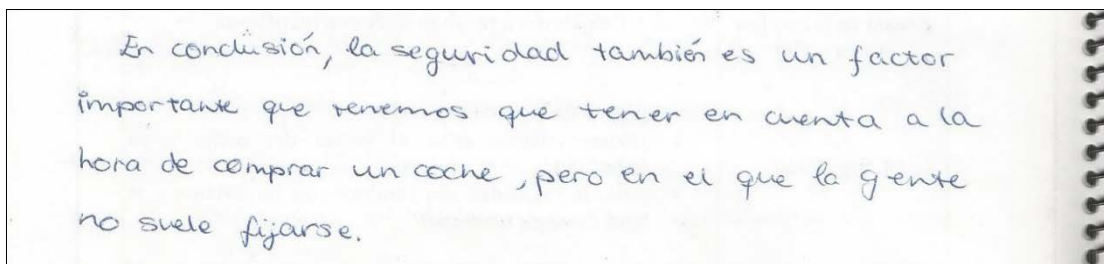 En conclusión, la seguridad también es un factor
importante que tenemos que tener en cuenta a la
hora de comprar un coche, pero en el que la gente
no suele fijarse.